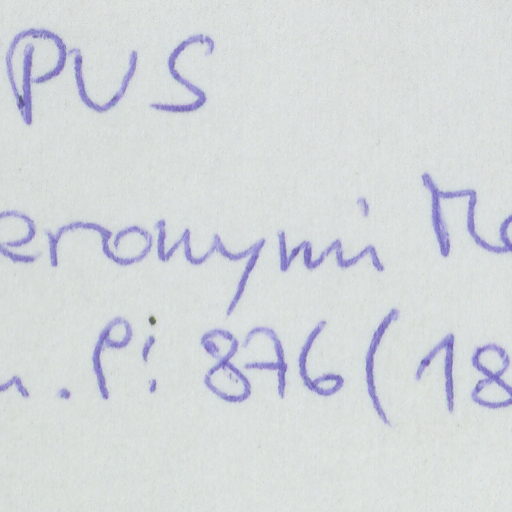 PUS
eronymi Me
n. Pi 876 (18